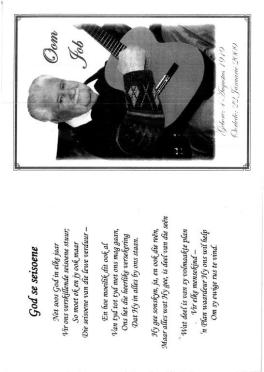 Oom
Job
Gebore: 4 Augustus 1919
Oorlede: 22 Januarie 2009
God se seisoene
Net soos God in elke jaar
Vir ons verskillende seisoene stuur;
So moet ek en jy ook maar
Die seisoene van die lewe verduur –
En hoe moeilik dit ook al
Van tyd tot tyd met ons mag gaan,
Ons het die heerlike versekering
Dat Hy in alles by ons staan.
Hy gee sonskyn, ja, en ook die reën,
Maar alles wat Hy gee, is deel van die seën
Wat deel is van sy volmaakte plan
Vir elke mensekind –
'n Plan waardeur Hy ons wil help
Om sy ewige rus te vind.